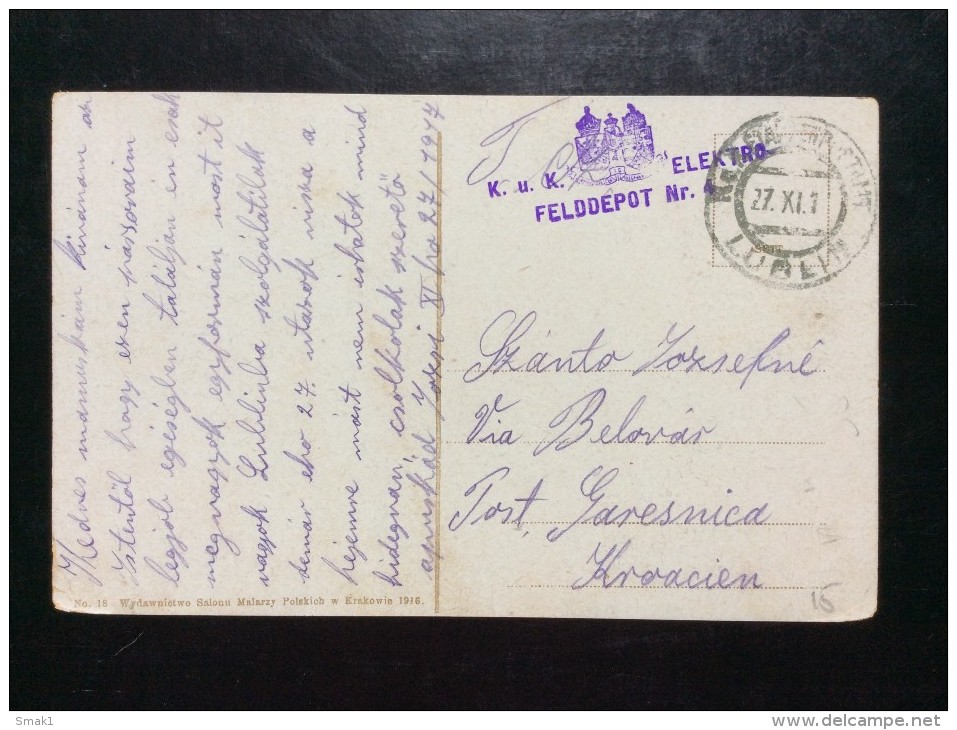 Kedves mamuskám kivánom az
Istentöl hogy ezen pár soraim
legjob egéségben találjon en csak
megvagyok egyformán most it
vagyok Lublinba szolgálatilak
temár eho 27. utazok visza a
hejemre mást nem irhatok mind
hidegvan, csolkolak szerető
apuskád Jozsi XI ho 27/1917
No. 18 Wydawnictwo Salonu Malarzy Polskich w Krakowie 1916.
T.
K. u. K. ELEKTRO-
FELDDEPOT Nr. 4
27. XI. 1
LUBLIN
Szánto Jozsefné
Via Belovár
Post, Garesnica
Kroacien
16
Smak1 www.delcampe.net